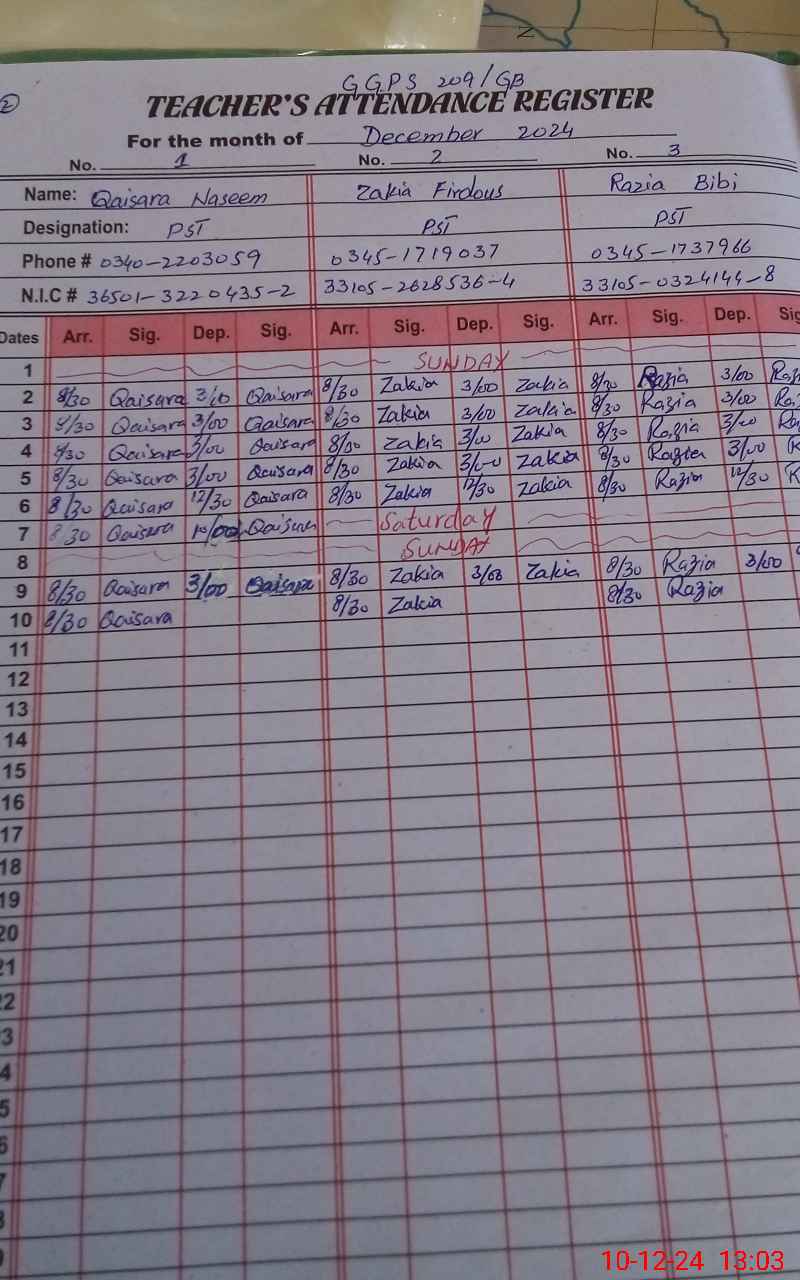 2
GGPS 209/GB
TEACHER'S ATTENDANCE REGISTER
For the month of December 2024
No. 1 No. 2 No. 3
Name: Qaisara Naseem Zakia Firdous Razia Bibi
Designation: PST PST PST
Phone # 0340-2203059 0345-1719037 0345-1737966
N.I.C # 36501-3220435-2 33105-2628536-4 33105-0324144-8
Dates Arr. Sig. Dep. Sig. Arr. Sig. Dep. Sig. Arr. Sig. Dep. Sig
1 SUNDAY
2 8/30 Qaisara 3/00 Qaisara 8/30 Zakia 3/00 Zakia 8/30 Razia 3/00
3 8/30 Qaisara 3/00 Qaisara 8/30 Zakia 3/00 Zakia 8/30 Razia 3/00
4 8/30 Qaisara 3/00 Qaisara 8/30 Zakia 3/00 Zakia 8/30 Razia 3/00
5 8/30 Qaisara 3/00 Qaisara 8/30 Zakia 3/00 Zakia 8/30 Razia 3/00
6 8/30 Qaisara 12/30 Qaisara 8/30 Zakia 12/30 Zakia 8/30 Razia 12/30
7 8/30 Qaisara 10/00 Qaisara Saturday
8 SUNDAY
9 8/30 Qaisara 3/00 Qaisara 8/30 Zakia 3/00 Zakia 8/30 Razia 3/00
10 8/30 Qaisara 8/30 Zakia 8/30 Razia
11
12
13
14
15
16
17
18
19
20
21
22
3
4
5
6
7
8
9
10-12-24 13:03